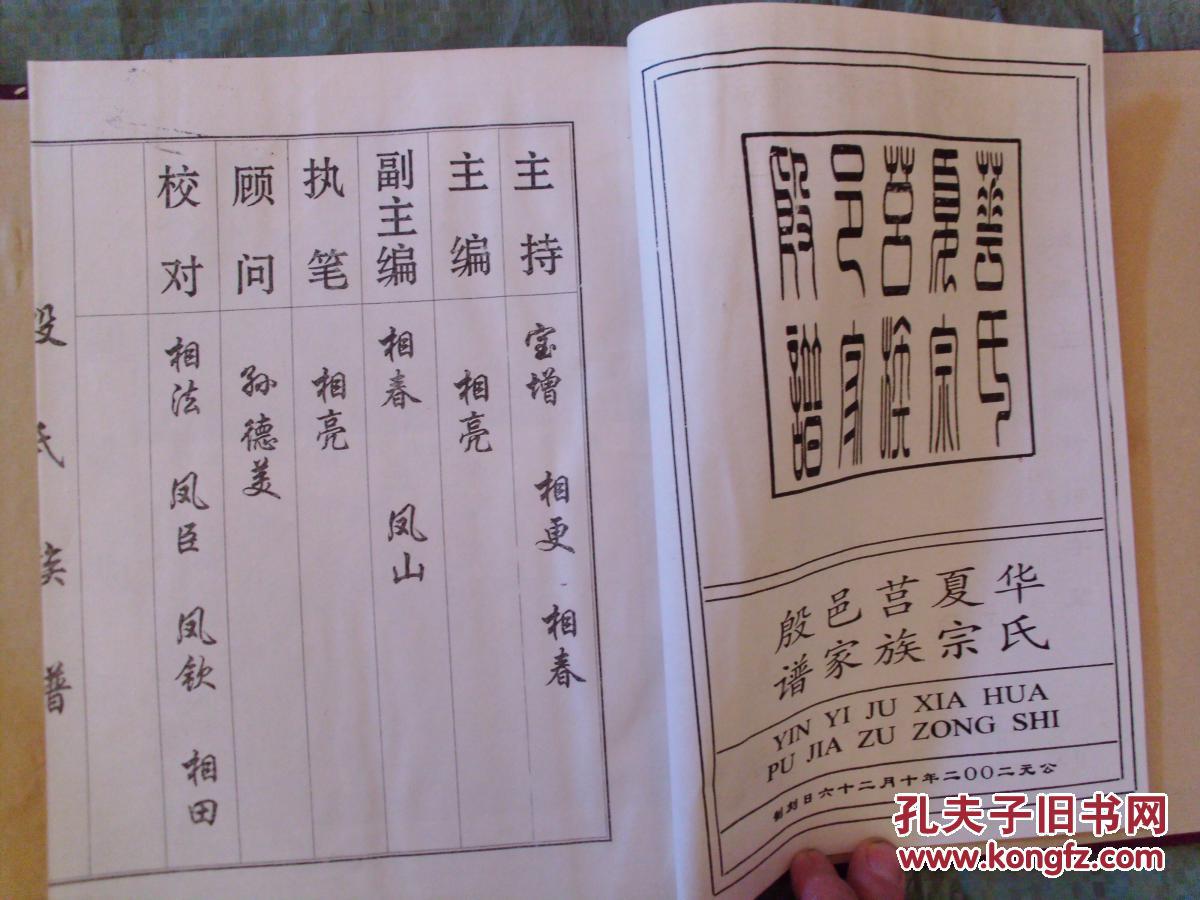 華夏莒邑殷
氏宗族家譜
华夏莒邑殷
氏宗族家谱
YIN YI JU XIA HUA
PU JIA ZU ZONG SHI
公元二00二年十月二十六日刻制
主持 宝增 相更 相春
主编 相亮
副主编 相春 凤山
执笔 相亮
顾问 孙德美
校对 相法 凤臣 凤钦 相田
殷氏族谱
孔夫子旧书网
www.kongfz.com